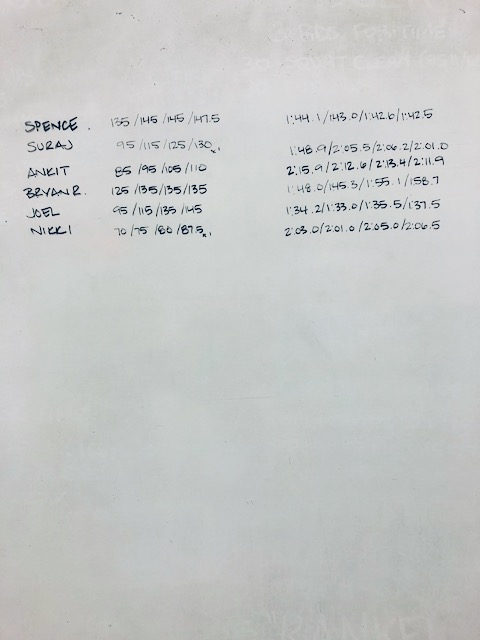 SPENCE. 135 /145 /145 /147.5 1:44.1/1:43.0/1:42.6/1:42.5
SURAJ 95/115/125/130x1 1:48.9/2:05.5/2:06.2/2:01.0
ANKIT 85/95/105/110 2:15.9/2:12.6/2:13.4/2:11.9
BRYAN R. 125/135/135/135 1:48.0/1:45.3/1:55.1/1:58.7
JOEL 95/115/135/145 1:34.2/1:33.0/1:35.5/1:37.5
NIKKI 70/75/80/87.5x1 2:03.0/2:01.0/2:05.0/2:06.5